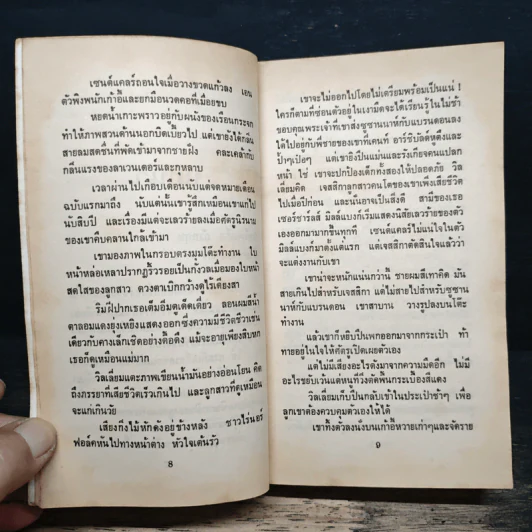 เซนต์แคลร์ถอนใจเมื่อวางขวดแก้วลง เอน
ตัวพิงพนักเก้าอี้และยกมือนวดคอที่เมื่อยขบ
หยดน้ำเกาะพราวอยู่กับผนังของเรือนกระจก
ทำให้ภาพสวนด้านนอกบิดเบี้ยวไป แต่เขายังได้กลิ่น
สายลมสดชื่นที่พัดเข้ามาจากชายฝั่ง คละเคล้ากับ
กลิ่นแรงของลาเวนเดอร์และกุหลาบ
เวลาผ่านไปเกือบเดือนนับแต่จดหมายเตือน
ฉบับแรกมาถึง นับแต่นั้นเขารู้สึกเหมือนเขาแก่ไป
นับสิบปี และเรื่องมีแต่จะเลวร้ายลงเมื่อศัตรูนิรนาม
ของเขาคืบคลานใกล้เข้ามา
เขามองภาพในกรอบตรงมุมโต๊ะทำงาน ใบ
หน้าหล่อเหลาปรากฏริ้วรอยเป็นกังวลเมื่อมองใบหน้า
สดใสของลูกสาว ดวงตาเบิกกว้างดูไร้เดียงสา
ริมฝีปากเธอเต็มอิ่มดูเด็ดเดี่ยว ลอนผมสีน้ำ
ตาลอมแดงยุ่งเหยิงแสดงออกซึ่งความมีชีวิตชีวาเช่น
เดียวกับคางเล็กเชิดอย่างดื้อดึง แม้จะอายุเพียงสิบหก
เธอก็ดูเหมือนแม่มาก
วิลเลี่ยมแตะภาพเขียนน้ำมันอย่างอ่อนโยน คิด
ถึงภรรยาที่เสียชีวิตเร็วเกินไป และลูกสาวที่ดูเหมือน
จะแก่เกินวัย
เสียงกิ่งไม้หักดังอยู่ข้างหลัง ชาวไร่นอร์
ฟอล์คหันไปทางหน้าต่าง หัวใจเต้นรัว
8
เขาจะไม่ออกไปโดยไม่เตรียมพร้อมเป็นแน่ !
ใครก็ตามที่ซ่อนตัวอยู่ในเงามืดจะได้เรียนรู้ในไม่ช้า
ขอบคุณพระเจ้าที่เขาส่งซูซานนาห์กับแบรนดอนลง
ใต้ไปอยู่กับพี่ชายของเขาที่เคนท์ อาร์ชิบัลด์หูตึงและ
ป้ำๆเป๋อๆ แต่เขายังปืนแม่นและรังเกียจคนแปลก
หน้า ใช่ เขาจะปกป้องเด็กทั้งสองให้ปลอดภัย วิล
เลี่ยมคิด เจสสิกาลูกสาวคนโตของเขาเพิ่งเสียชีวิต
ไปเมื่อปีก่อน และนั่นอาจเป็นสิ่งดี สามีของเธอ
เซอร์ชาร์ลส์ มิลล์แบงก์เริ่มแสดงนิสัยเลวร้ายของตัว
เองออกมามากขึ้นทุกที เซนต์แคลร์ไม่แน่ใจในตัว
มิลล์แบงก์มาตั้งแต่แรก แต่เจสสิกาตัดสินใจแล้วว่า
จะแต่งงานกับเขา
เขาน่าจะหนักแน่นกว่านี้ ชายผมสีเทาคิด มัน
สายเกินไปสำหรับเจสสิกา แต่ไม่สายไปสำหรับซูซาน
นาห์กับแบรนดอน เขาสาบาน วางรูปลงบนโต๊ะ
ทำงาน
แล้วเขาก็หยิบปืนพกออกมาจากกระเป๋า ท้า
ทายอยู่ในใจให้ศัตรูเปิดเผยตัวเอง
แต่ไม่มีเสียงอะไรดังมาจากความมืดอีก ไม่มี
อะไรขยับเว้นแต่หนที่วงตัดพื้นกระเบื้องสีแดง
วิลเลี่ยมเก็บปืนกลับเข้าในกระเป๋าช้าๆ เพื่อ
ลูกเขาต้องควบคุมตัวเองให้ได้
เขาทิ้งตัวลงนั่งบนเก้าอี้หวายเก่าๆและจัดราย
9